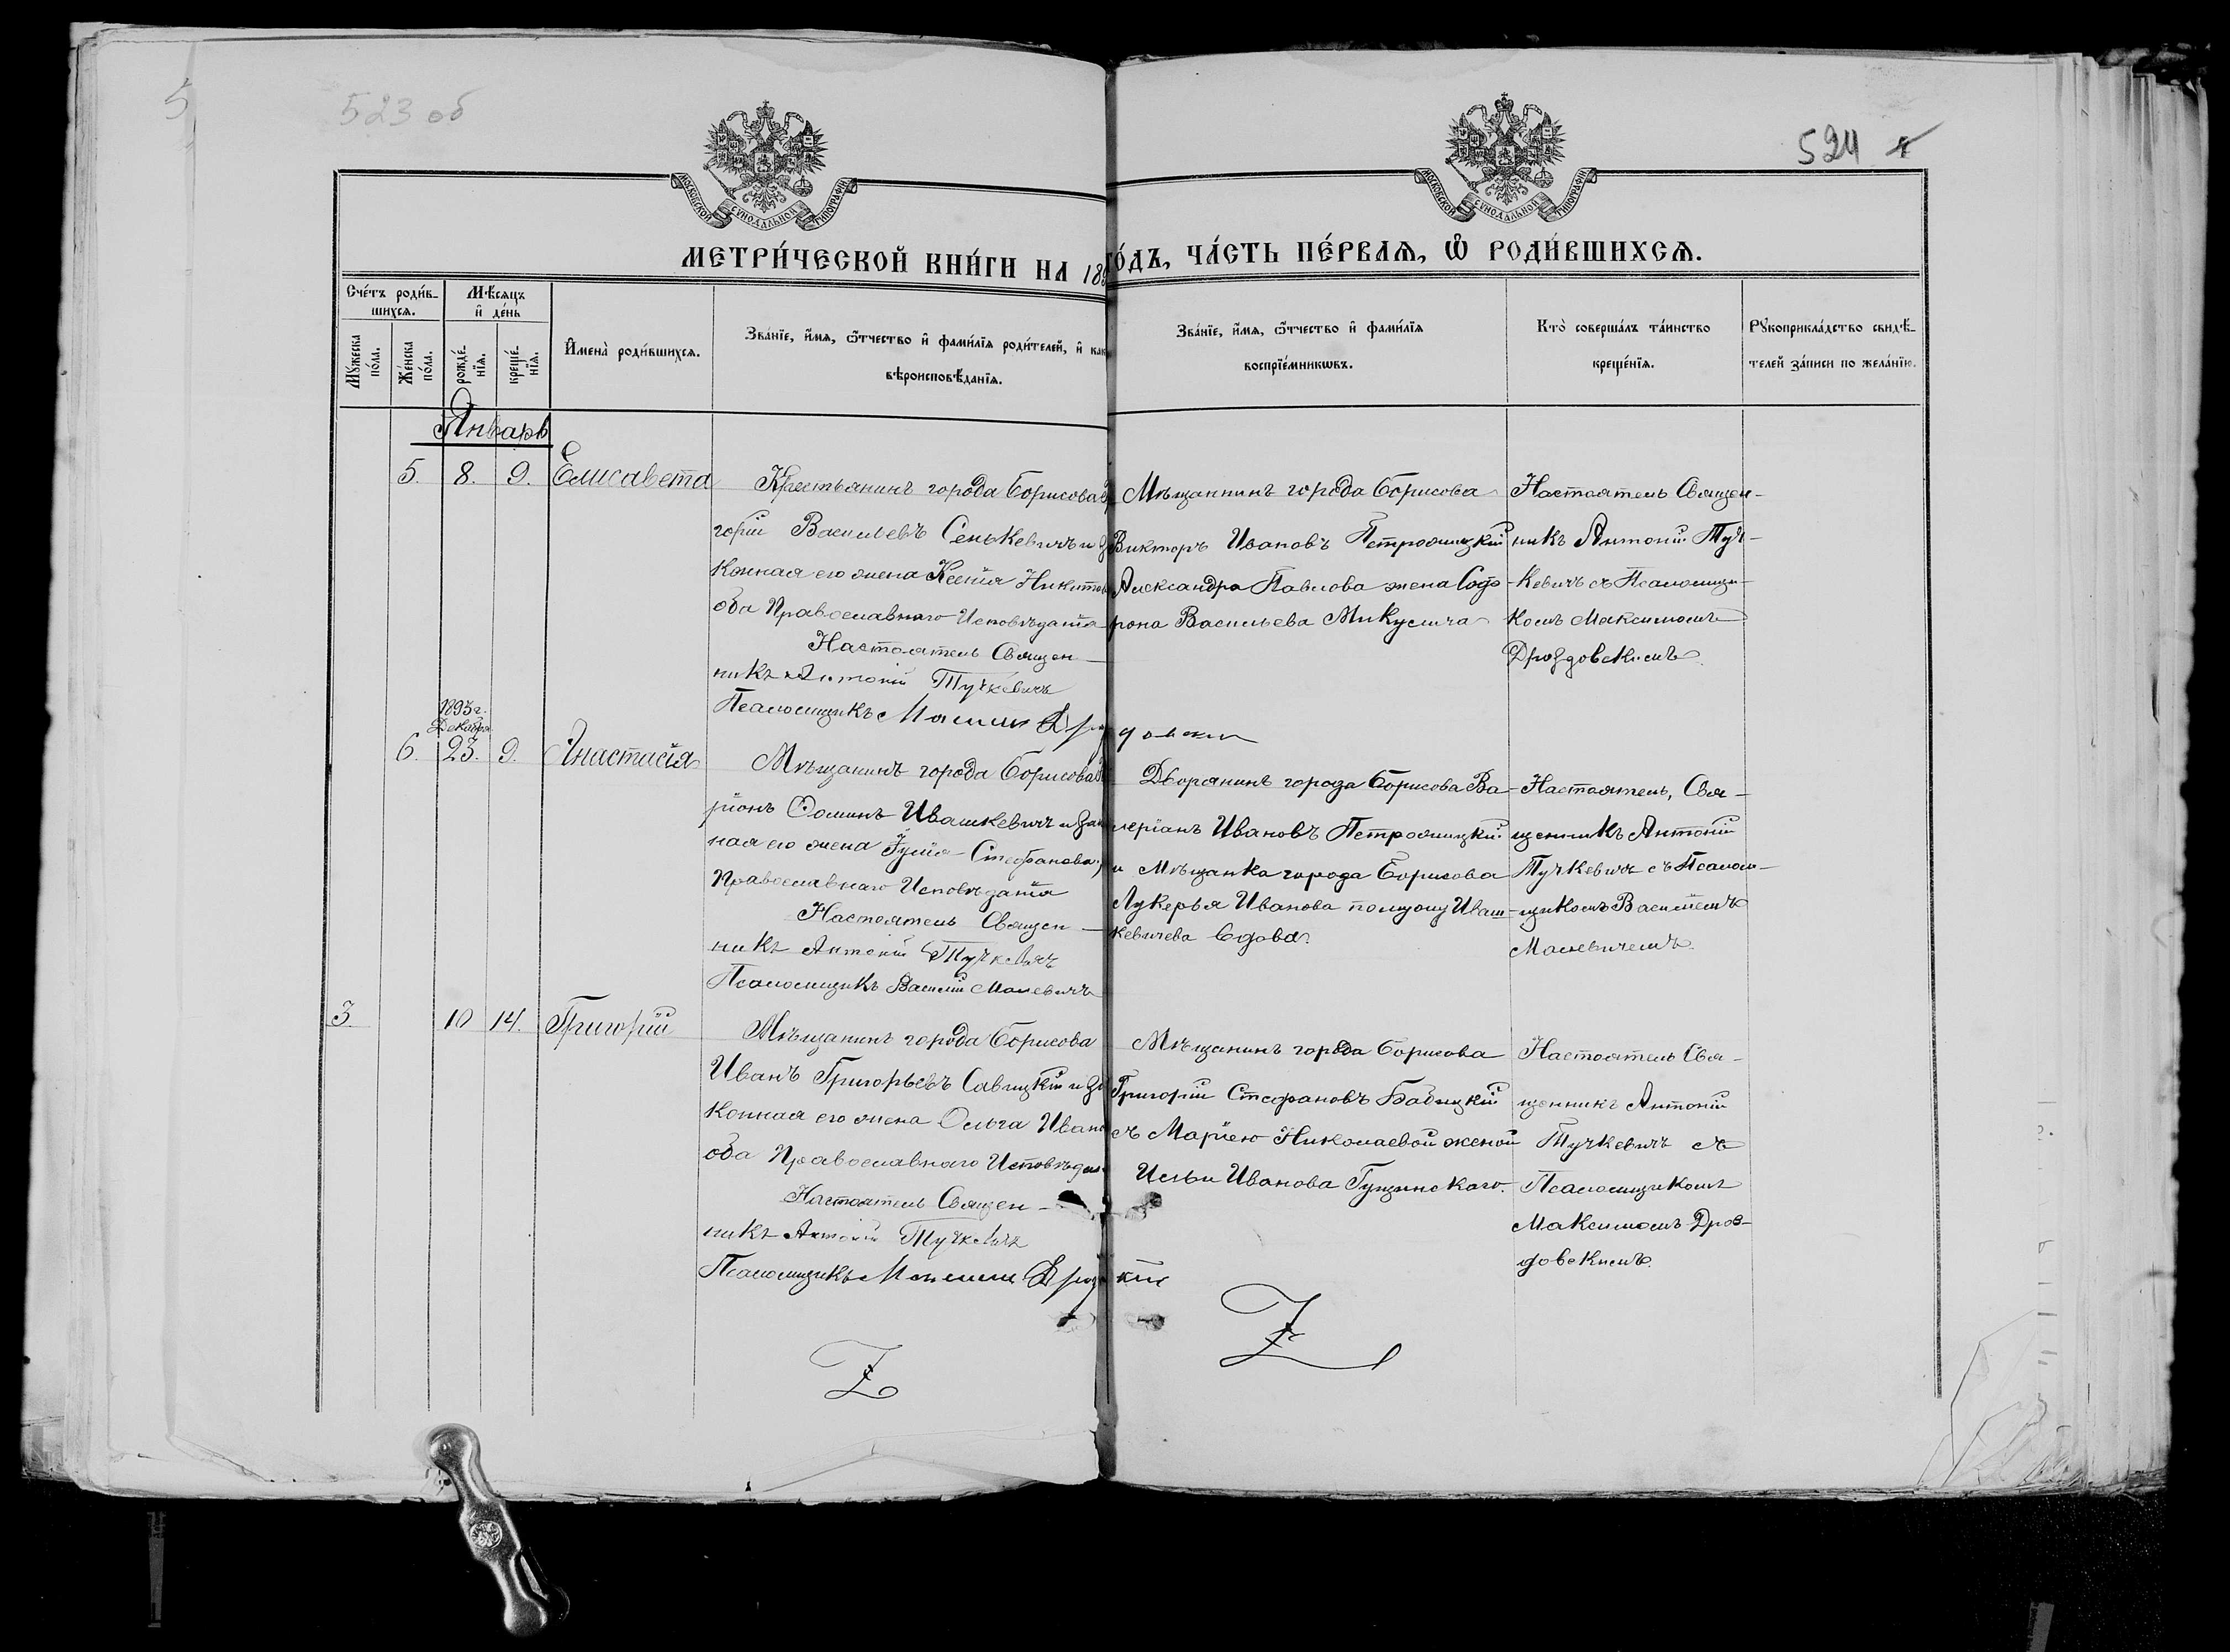 5
523 об
524
МОСКОВСКОЙ СѴНОДАЛЬНОЙ ТИПОГРАФІИ
МОСКОВСКОЙ СѴНОДАЛЬНОЙ ТИПОГРАФІИ
МЕТРИ́ЧЕСКОЙ КНИ́ГИ НА 189
ГО́ДЪ, ЧА́СТЬ ПЕ́РВАЯ, Ѽ РОДИ́ВШИХСЯ.
Сче́тъ роди́в-
шихся.
Мѣ́сяцъ
и де́нь
Му́жеска по́ла.
Же́нска по́ла.
рожде́-нїя.
креще́-нїя.
И҆мена̀ роди́вшихся.
Зва́нїе, и҆́мя, ѻ҆́тчество и҆ фами́лїя роди́телей, и҆ как
вѣроисповѣ́данїя.
Зва́нїе, и҆́мя, ѻ҆́тчество и҆ фами́лїя
воспрїе́мникѡвъ.
Кто̀ соверша́лъ та́инство
креще́нїя.
Рꙋкоприкла́дство свидѣ́-
телей за́писи по жела́нїю.
Январь
5. 8. 9. Елисавета
Крестьянинъ города Борисова
горій Васильевъ Сенькевичъ и
конная его жена Ксенія Никитов
оба Православнаго Исповѣданія
Настоятель Священ-
никъ Антоній Тучкевичъ
Псаломщикъ
Мѣщанинъ города Борисова
Викторъ Ивановъ Петрожицкій
Александра Павлова жена Соф-
рона Васильева Микулича
Настоятель Священ-
никъ Антоній Туч-
кевичъ съ Псаломщи-
комъ Максимомъ
Дроздовскимъ.
1893 г.
Декабря
6. 23. 9. Анастасія
Мѣщанинъ города Борисова
ріонъ Ѳоминъ Ивашкевичъ и зак
ная его жена Стефанова,
Православнаго Исповѣданія
Настоятель Священ-
никъ Антоній Тучкевичъ
Псаломщикъ Василій Малевичъ
Дворянинъ города Борисова Ва-
леріанъ Ивановъ Петрожицкій
и Мѣщанка города Борисова
Лукерья Иванова по мужу Иваш-
кевичева вдова.
Настоятель, Свя-
щенникъ Антоній
Тучкевичъ съ Псалом-
щикомъ Василіемъ
Малевичемъ.
3. 10 14. Григорій
Мѣщанинъ города Борисова
Иванъ Григорьевъ Савицкій и за
конная его жена Ольга Ивано
оба Православнаго Исповѣдан
Настоятель Священ-
никъ Антоній Тучкевичъ
Псаломщикъ
Мѣщанинъ города Борисова
Григорій Стефановъ Бабицкій
съ Маріею Николаевой женой
Ильи Иванова Гущинскаго.
Настоятель Свя-
щенникъ Антоній
Тучкевичъ съ
Псаломщикомъ
Максимомъ Дроз-
довскимъ.